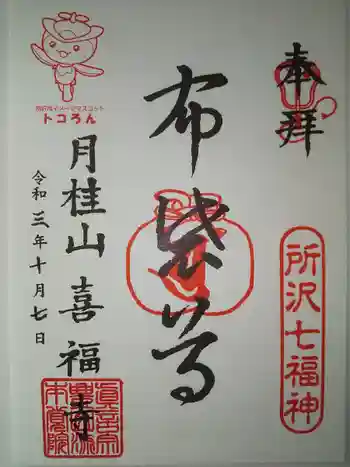 奉拝
所沢七福神
布袋尊
月桂山 喜福寺
令和三年十月七日
所沢市イメージマスコット
トコろん